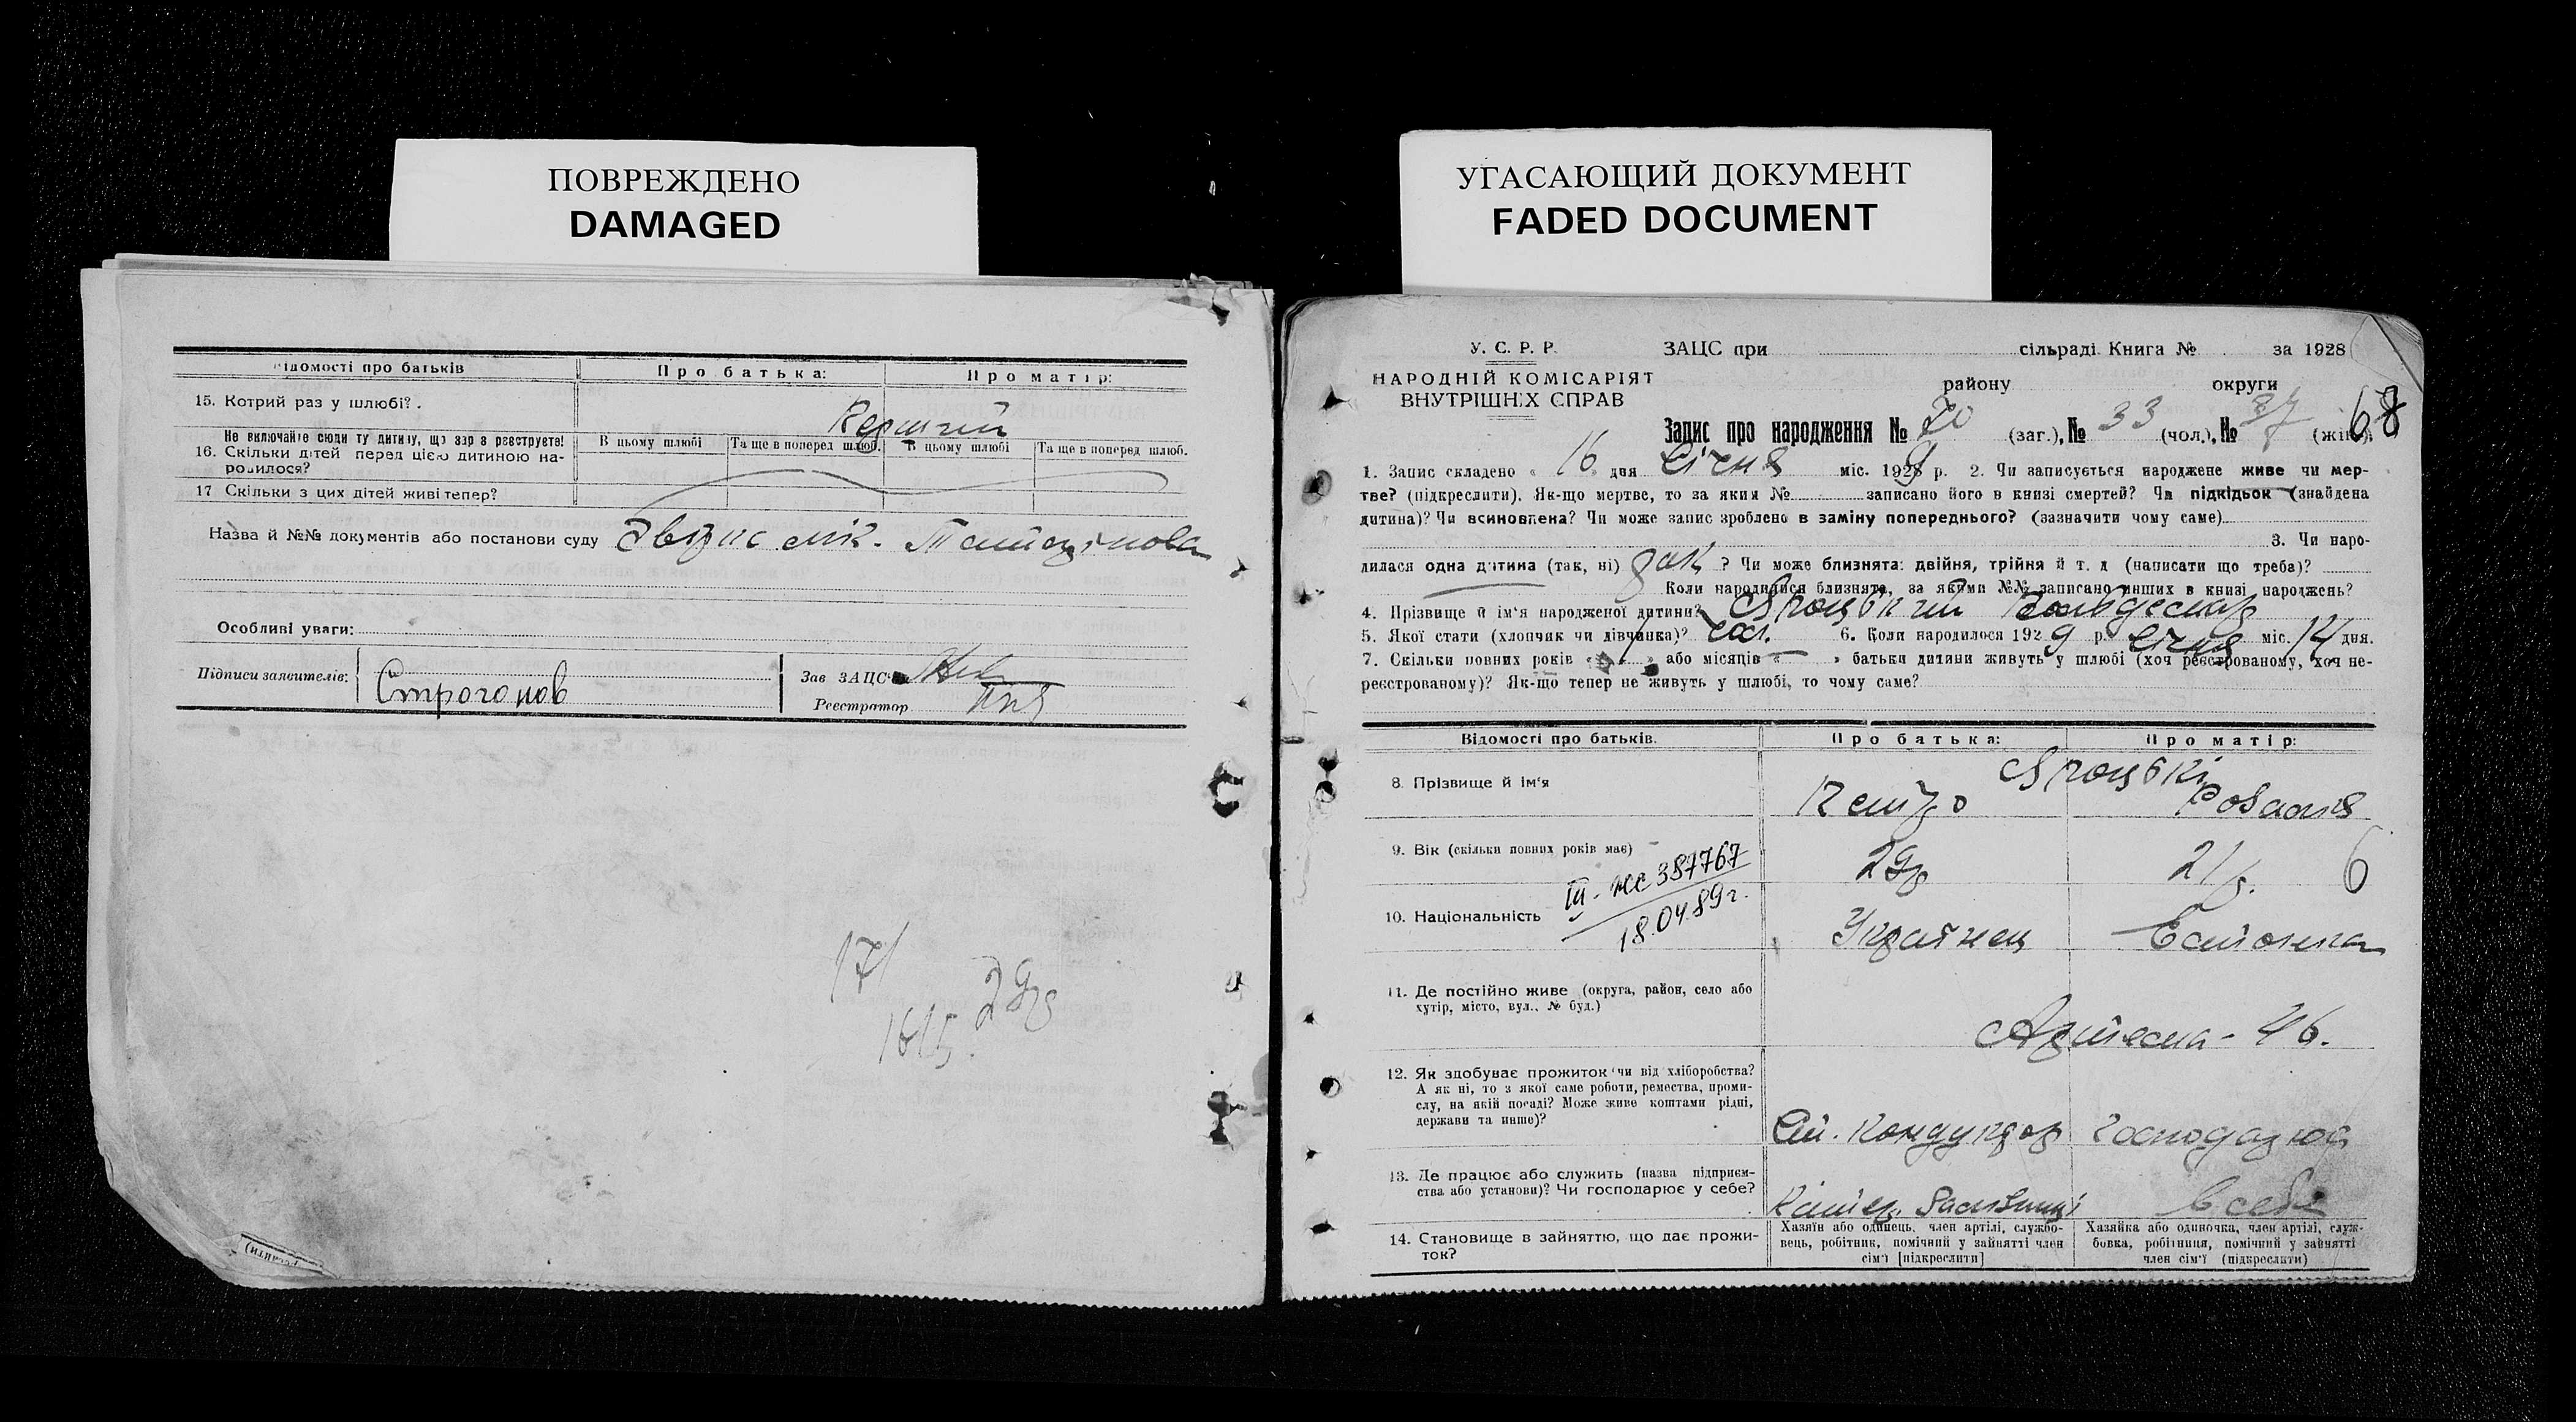 ПОВРЕЖДЕНО
DAMAGED
Відомості про батьків
Про батька:
Про матір:
15. Котрий раз у шлюбі?
Перший
Не включайте сюди ту дитину, що зараз реєструєте!
16. Скільки дітей перед цією дитиною народилося?
В цьому шлюбі
Та ще в поперед. шлюб.
В цьому шлюбі
Та ще в поперед. шлюб.
17 Скільки з цих дітей живі тепер?
Назва й №№ документів або постанови суду
Особливі уваги:
Підписи заявителів:
Строганов
Зав ЗАЦС'ом
Реєстратор
171
1615
29р
УГАСАЮЩИЙ ДОКУМЕНТ
FADED DOCUMENT
У. С. Р. Р.
НАРОДНІЙ КОМІСАРІЯТ
ВНУТРІШНІХ СПРАВ
ЗАЦС при сільраді. Книга № за 1928
району округи
Запис про народження № 70 (заг.), № 33 (чол.), № 37 (жін.)
68
1. Запис складено « 16 дня Січня міс. 1929 р. 2. Чи записується народжене живе чи мер-
тве? (підкреслити). Як-що мертве, то за яким № записано його в книзі смертей? Чи підкідьок (знайдена
дитина)? Чи всиновлена? Чи може запис зроблено в заміну попереднього? (зазначити чому саме)
3. Чи наро-
дилася одна дитина (так, ні) так ? Чи може близнята: двійня, трійня й т. д (написати що треба)?
Коли народилися близнята, за якими №№ записано инших в книзі народжень?
4. Прізвище й ім'я народженої дитини? Вольдемар
5. Якої стати (хлопчик чи дівчинка)? чол. 6. Коли народилося 1929 р. Січня міс. 14 дня.
7. Скільки повних років « 1 » або місяців « — » батьки дитини живуть у шлюбі (хоч реєстрованому, хоч не-
реєстрованому)? Як-що тепер не живуть у шлюбі, то чому саме?
Відомості про батьків.
Про батька:
Про матір:
8. Прізвище й ім'я
Петро
Розалія
9. Вік (скільки повних років має)
29р
21р.
6
III - ЖС 387767
18.04.89 г.
10. Національність
Українец
Естонка
11. Де постійно живе (округа, район, село або
хутір, місто, вул., № буд.)
Артема - 46.
12. Як здобуває прожиток чи від хліборобства?
А як ні, то з якої саме роботи, ремества, проми-
слу, на якій посаді? Може живе коштами рідні,
держави та инше)?
Ст. Кондуктор
Господарює
13. Де працює або служить (назва підприєм-
ства або установи)? Чи господарює у себе?
в себе
14. Становище в зайняттю, що дає прожи-
ток?
Хазяїн або одинець, член артілі, службо-
вець, робітник, помічний у зайнятті член
сім'ї [підкреслити]
Хазяйка або одиночка, член артілі, служ-
бовка, робітниця, помічний у зайнятті
член сім'ї (підкреслити)